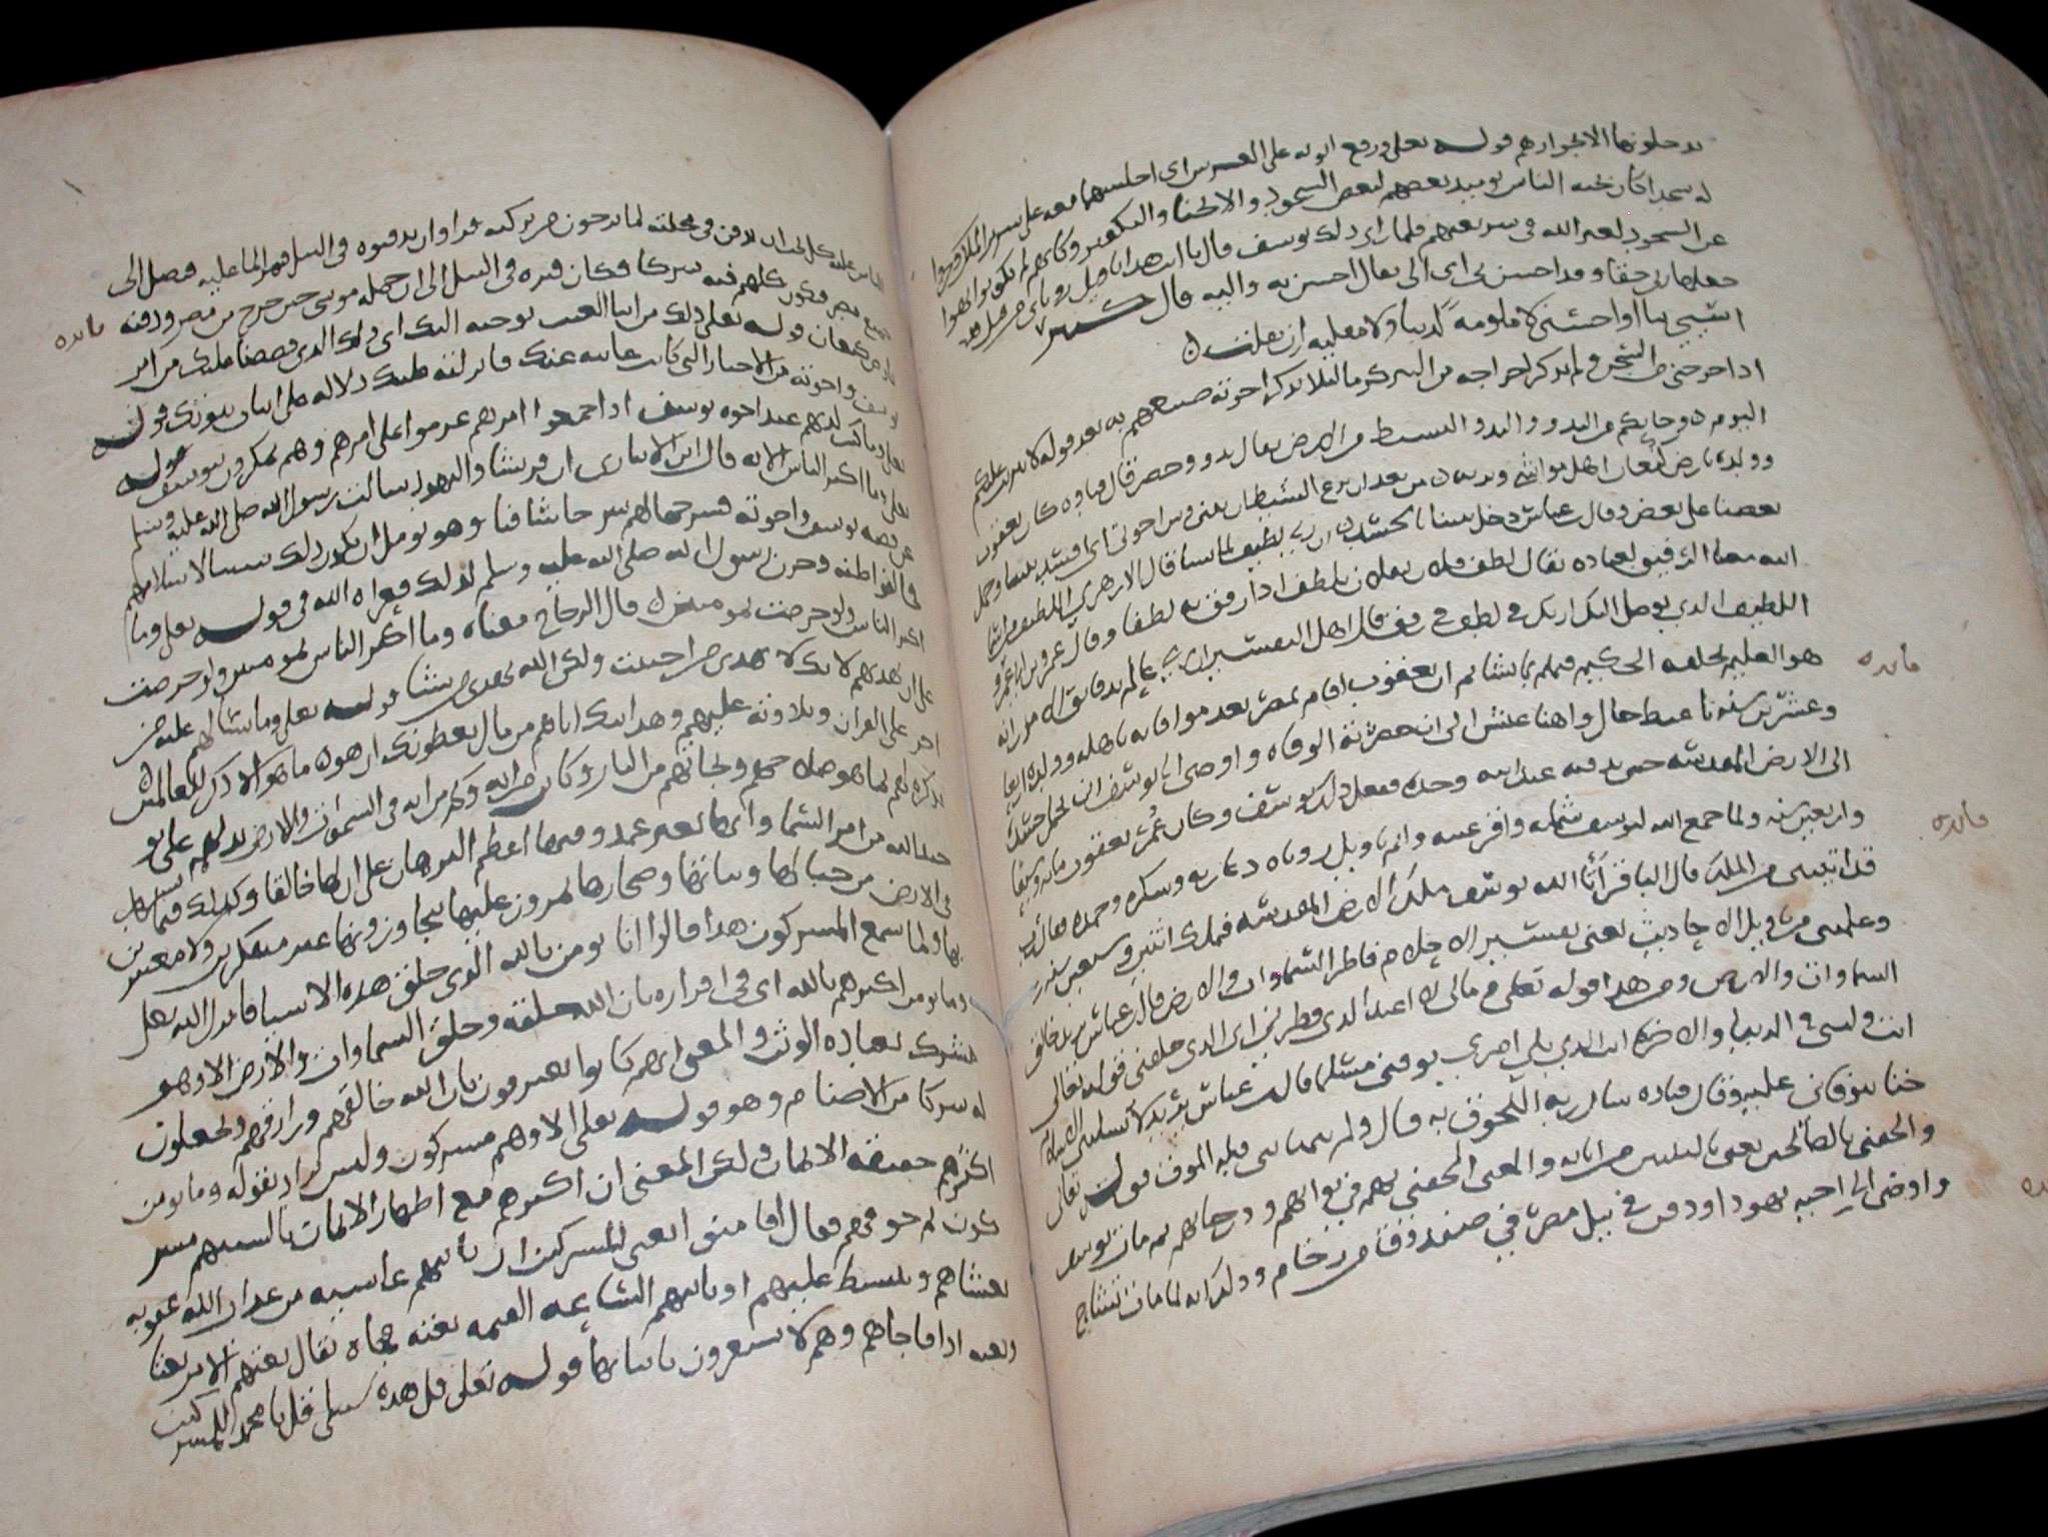 يدخلونها الا بجوازهم قوله تعلى ورفع ابويه على العرش اى اجلسهما معه على سرير الملك وخروا
له سجدا كان تحية الناس يوميذ بعضهم لبعض السجود والانحنا والتكفير ولم يكونوا نهوا
عن السجود لغير الله فى شريعتهم فلما راى ذلك يوسف قال يا ابت هذا تاويل روياى من قبل قد
جعلها ربى حقا وقد احسن بى اى الى يقال احسن به واليه قال كثير
اسيئى بنا او احسنى لا ملومة لدينا ولا مقلية ان تقلت
اذ اخرجنى من السجن ولم يذكر اخراجه من البير كرما ليلا يذكر اخوته صنيعهم به بعد قوله لا تثريب عليكم
اليوم وجا بكم من البدو والبدو البسيط من الارض يقال بدو وحضر قال قتاده كان يعقوب
وولده بارض كنعان اهل مواشى وبرية من بعد ان نزغ الشيطان بينى وبين اخوتى اى افسد بيننا وحمل
بعضنا على بعض وقال عباس دخل بيننا بالحسد ان ربى لطيف لما يشا قال الازهرى اللطيف من اسما
الله معناه الرفيق بعباده يقال لطف فلان بفلان يلطف اذا رفق به لطفا وقال عمرو بن ابى عمرو
اللطيف الذى يوصل اليك اربك فى لطف فى رفق قال اهل التفسير ان ربى عالم بدقايق الامور انه
هو العليم بخلقه الحكيم فيهم بما يشا ثم ان يعقوب اقام بمصر بعد موافاته باهله وولده اربعا
وعشرين سنه باغبط حال واهنا عيش الى ان حضرته الوفاه واوصى الى يوسف ان يحمل جسده
الى الارض المقدسه حتى يدفنه عند ابيه وجده ففعل ذلك يوسف وكان عمر يعقوب مايه وسبعا
واربعين سنه ولما جمع الله ليوسف شمله واقر عينه واتم تاويل روياه دعا ربه وشكره وحمده فقال رب
قد اتيتنى من الملك قال الباقر اتا الله يوسف ملك الارض المقدسه فملك اثنين وسبعين سنه
وعلمتنى من تاويل الاحاديث يعنى تفسير الاحلام فاطر السماوات والارض قال عباس يريد خالق
السماوات والارض ومن هذا قوله تعلى وما لى لا اعبد الذى فطرنى اى الذى خلقنى قوله تعالى
انت وليى فى الدنيا والاخره انت الذى تلى امرى توفنى مسلما قال عباس يريد لا تسلبنى الاسلام
حتا تتوفانى عليه وقال قتاده سال ربه اللحوق به قال ولم يتمنا نبى قبله الموت قوله تعالى
والحقنى بالصالحين يعنى بالنبيين من ابايه والمعنى الحقنى بهم فى ثوابهم ودرجاتهم ثم مات يوسف
واوصى الى اخيه يهودا ودفن فى نيل مصر فى صندوق من رخام وذلك انه لما مات تشاح
فايده
فايده
الناس عليه كل يحب ان يدفن فى محلته لما يرجون من بركته فراوا ان يدفنوه فى النيل فيمر الما عليه فيصل الى
جميع مصر فيكون كلهم فيه شركا فكان قبره فى النيل الى ان حمله موسى حين خرج من مصر ودفنه
بارض كنعان قوله تعلى ذلك من انبا الغيب نوحيه اليك اى ذلك الذى قصصنا عليك من امر
يوسف واخوته من الاخبار التى كانت غايبه عنك فانزلته عليك دلاله على اثبات نبوتك قوله
تعلى وما كنت لديهم عند اخوه يوسف اذ اجمعوا امرهم عزموا على امرهم وهم يمكرون بيوسف قوله
تعلى وما اكثر الناس الايه قال ابن الانبارى ان قريشا واليهود سالت رسول الله صلى الله عليه وسلم
عن قصه يوسف واخوته فشرحها لهم شرحا شافيا وهو يومل ان يكون ذلك سببا لاسلامهم
فخالفوا ظنه وحزن رسول الله صلى الله عليه وسلم لذلك فعزاه الله فى قوله تعلى وما
اكثر الناس ولو حرصت بمومنين قال الزجاج معناه وما اكثر الناس بمومنين ولو حرصت
على ان تهديهم لانك لا تهدى من احببت ولكن الله يهدى من يشا قوله تعلى وما تسالهم عليه من
اجر على القران وتلاوته عليهم وهدايتك اياهم من مال يعطونك ان هو ما هو الا ذكر للعالمين
تذكره لهم بما هو صلاحهم ونجاتهم من النار وكاين من ايه وكم من ايه فى السموات والارض تدلهم على تو
حيد الله من امر السما وانها بغير عمد وفيها اعظم البرهان على ان لها خالقا وكذلك فيما يشاهد
فى الارض من جبالها ونباتها وبحارها يمرون عليها يتجاوزونها غير متفكرين ولا معتبرين
بها ولما سمع المشركون هذا قالوا انا نومن بالله الذى خلق هذه الاشيا فانزل الله تعلى
وما يومن اكثرهم بالله اى فى اقراره بان الله خلقه وخلق السماوات والارض الا وهو
مشرك بعباده الوثن والمعنى انهم كانوا يعترفون بان الله خالقهم ورازقهم ويجعلون
له شركا من الاصنام وهو قوله تعلى الا وهم مشركون وليس المراد بقوله وما يومن
اكثرهم حقيقه الايمان ولكن المعنى ان اكثرهم مع اظهار الايمان بالسنتهم مشر
كون ثم خوفهم فقال افامنوا يعنى المشركين ان تاتيهم غاشيه من عذاب الله عقوبه
تغشاهم وتنبسط عليهم او تاتيهم الساعه القيمه بغته فجاه يقال بغتهم الامر بغتا
وبغته اذا فاجاهم وهم لا يشعرون باتيانها قوله تعلى قل هذه سبيلى قل يا محمد للمشر
كين
فايده